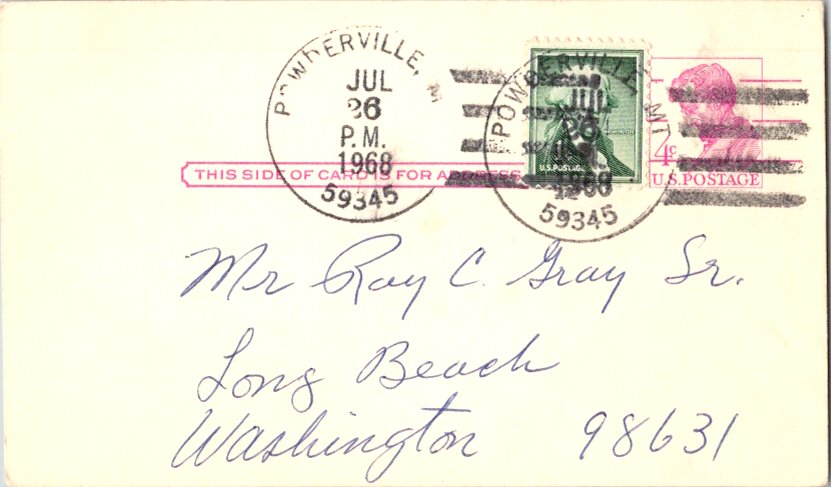 POWDERVILLE, M
JUL
26
P.M.
1968
59345
POWDERVILLE, MT
JUL
26
P.M.
1968
59345
WASHINGTON
U.S. POSTAGE
4c
U.S.POSTAGE
THIS SIDE OF CARD IS FOR ADDRESS
Mr Roy C. Gray Sr.
Long Beach
Washington 98631